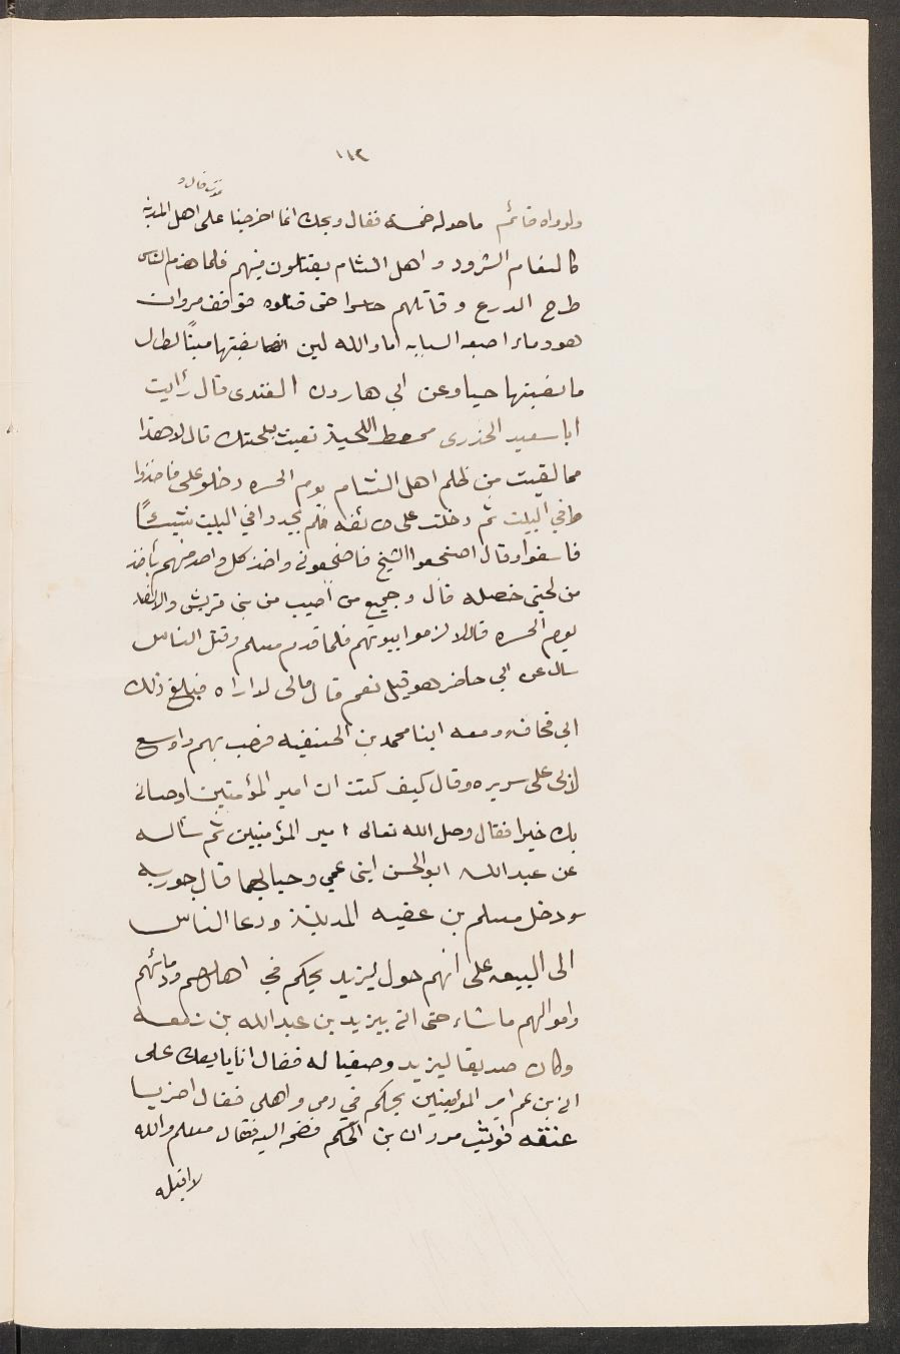 ١١٢
قال و
ولوواه قائم ما حوله خمسة فقال ويحك انما اخرجنا على اهل المدينة
كالنعام الشرود واهل الشام يقتلون فيهم فلما هزم الناس
طرح الدرع وقاتلهم حاسرا حتى قتلوه فوقف مروان
هو وماد اصبعه السبابه اما والله لين نصبتها ميتًا لطال
ما نصبتها حيا وعن ابي هارون العبدى قال رأيت
ابا سعيد الخدرى ممعط اللحية تعبث بلحيتك قال لا هذا
مما لقيت من ظلم اهل الشام يوم الحره دخلو على فاخذوا
ما في البيت ثم دخلت على طائفه فلم يجدوا في البيت شيئًا
فاسفوا وقال اضجعوا الشيخ فاضجعونى واخذ كل واحد منهم يأخذ
من لحيتى خصله قال وجميع من أصيب من بنى قريش والانصار
يوم الحره قال لا لزموا بيوتهم فلما قدم مسلم وقتل الناس
سال عن ابي حاضر هو قيل نعم قال مالى لا اراه فبلغ ذلك
ابي فجاءه ومعه ابنا محمد بن الحنيفيه فرحب بهم واوسع
لابى على سريره وقال كيف كنت ان امير المؤمنين اوصانى
بك خيرا فقال وصل الله تعالى امير المؤمنين ثم سأله
عن عبد الله ابو الحسن ابنى عمي وحيا لهما قال جوريه
ودخل مسلم بن عقبه المدينة ودعا الناس
الى البيعه على انهم خول ليزيد يحكم في اهلهم ودمائهم
واموالهم ما شاء حتى اتى بيزيد بن عبد الله بن زمعه
وكان صديقا ليزيد وصفيا له فقال انا يا يعك على
انى بن عم امير المؤمنين يحكم في دمى واهلى فقال اضربا
عنقه فوثب مروان بن الحكم فضمه اليه فقال مسلم والله
لا اقبله